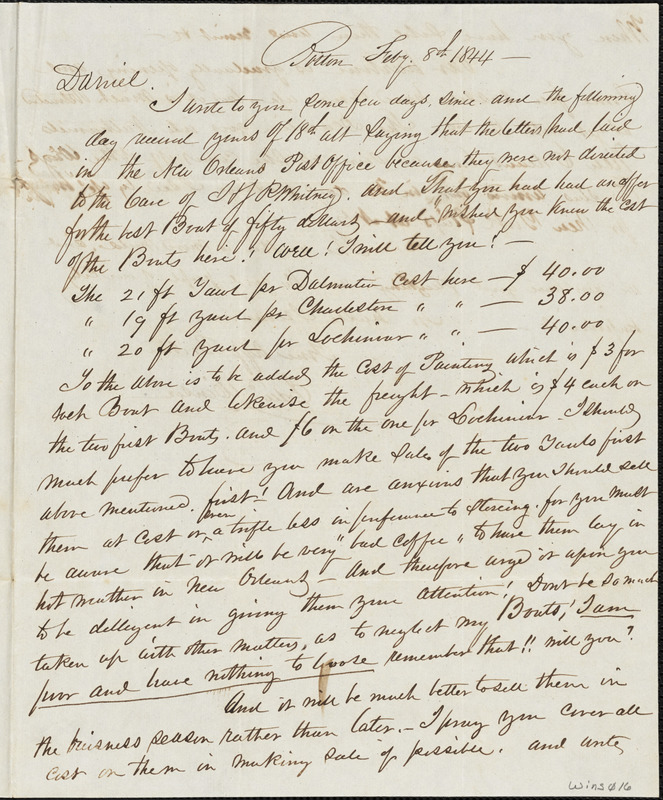 Boston Feby. 8th 1844 —
Daniel
I wrote to you some few days, since. and the following
day received yours of 18th ult saying that the letters had laid
in the New Orleans Post Office because they were not directed
to the Care of J & J R Whitney. and That you had had an offer
for the best Boat of fifty dollars — and "wished you knew the cost
of the Boats here"! Well! I will tell you! —
The 21 ft Yawl pr Dalmatia cost here — $ 40.00
" 19 ft yawl pr Charleston " " — 38.00
" 20 ft yawl pr Lochinvar " " — 40.00
To the above is to be added the Cost of Painting which is $3 for
each Boat and likewise the freight — which is $4 each on
the two first Boats. and $6 on the one pr Lochinvar — I should
much prefer to have you make sales of the two Yawls first
above mentioned. first! And are anxious that you should sell
them at cost or even a trifle less in preference to storeing. for you must
be aware that it will be very "bad coffee" to have them lay in
hot weather in New Orleans — And therefore urge it upon you
to be dilligent in giving them your attention! Dont be so much
taken up with other matters, as to neglect my Boats! I am
poor and have nothing to loose remember that!! will you?
And it will be much better to sell them in
the buisness season rather than later. — I pray you cover all
cost on them in making sale if possible. and write
Wins 616